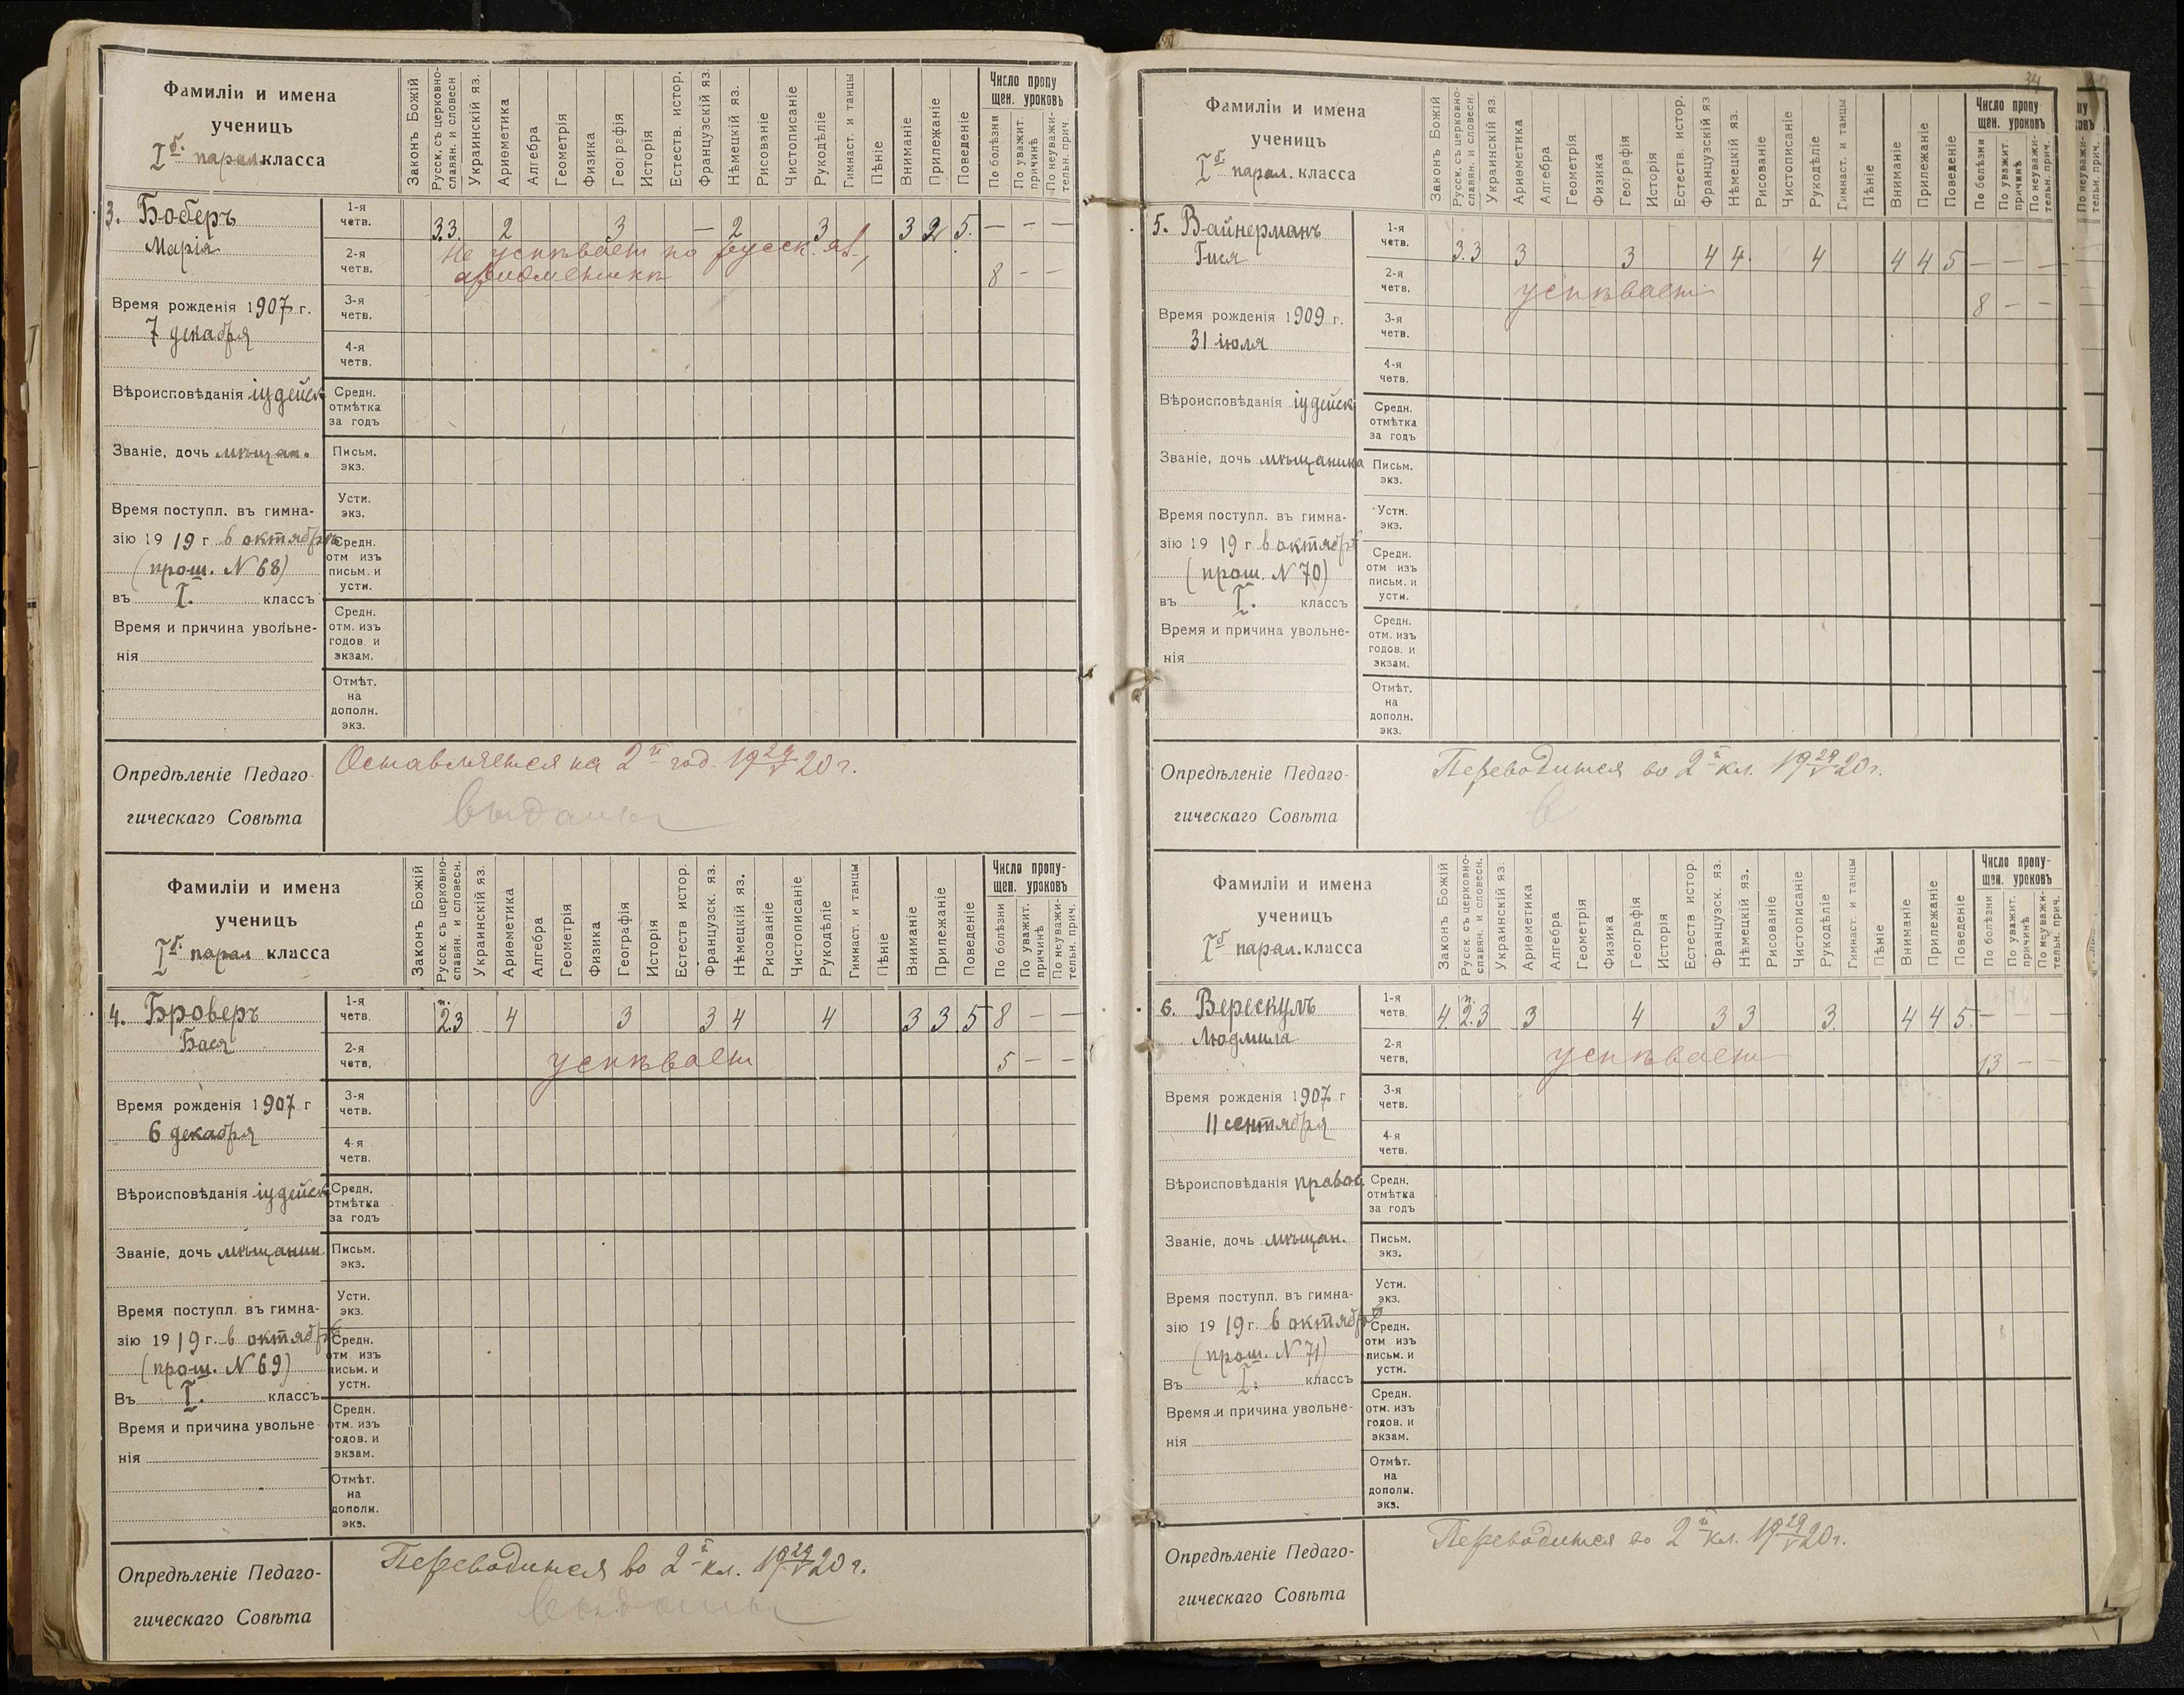 Фамиліи и имена
ученицъ
I б. парал. класса
Законъ Божій
Русск. съ церковно-
славян. и словесн
Украинскій яз.
Ариѳметика
Алгебра
Геометрія
Физика
Географія
Исторія
Естеств. истор.
Французскій яз.
Нѣмецкій яз.
Рисованіе
Чистописаніе
Рукодѣліе
Гимнаст. и танцы
Пѣніе
Вниманіе
Прилежаніе
Поведеніе
Число пропу
щен. уроковъ
По болѣзни
По уважит.
причинѣ
По неуважи-
тельн. прич.
3. Боберъ
Марія
1-я
четв.
3.3. 2 3 — 2 3 3 2 5. — — —
2-я
четв.
Не успѣваетъ по русск. яз.,
ариѳметикѣ
8 - -
Время рожденія 1907 г.
7 декабря
3-я
четв.
4-я
четв.
Вѣроисповѣданія іудейск
Средн.
отмѣтка
за годъ
Званіе, дочь мѣщан.
Письм.
экз.
Время поступл. въ гимна-
зію 19 19 г в октябрѣ
(прош. N 68)
въ I. классъ
Устн.
экз.
Средн.
отм изъ
письм. и
устн.
Время и причина увольне-
нія
Средн.
отм. изъ
годов. и
экзам.
Отмѣт.
на
дополн.
экз.
Опредѣленіе Педаго-
гическаго Совѣта
Оставляется на 2й год. 19 29/V 20 г.
выданы
Фамиліи и имена
ученицъ
I б. парал класса
Законъ Божій
Русск. съ церковно-
славян. и словесн.
Украинскій яз.
Ариѳметика
Алгебра
Геометрія
Физика
Географія
Исторія
Естеств истор.
Французск. яз.
Нѣмецкій яз.
Рисованіе
Чистописаніе
Рукодѣліе
Гимнаст. и танцы
Пѣніе
Вниманіе
Прилежаніе
Поведеніе
Число пропу-
щен. уроковъ
По болѣзни
По уважит.
причинѣ
По неуважи-
тельн. прич.
4. Броверъ
Бася
1-я
четв.
2.3 4 3 3 4 4 3 3 5 8 — —
2-я
четв,
успѣваетъ
5 - -
Время рожденія 1907 г
6 декабря
3-я
четв.
4-я
четв.
Вѣроисповѣданія іудейск
Средн.
отмѣтка
за годъ
Званіе, дочь мѣщанин.
Письм.
экз.
Время поступл. въ гимна-
зію 19 19 г. в октябрѣ
(прош. N 69)
Въ I. классъ
Устн.
экз.
Средн.
отм изъ
письм. и
устн.
Время и причина увольне-
нія
Средн.
отм. изъ
годов. и
экзам.
Отмѣт.
на
дополн.
экз.
Опредѣленіе Педаго-
гическаго Совѣта
Переводится во 2й кл. 19 29/V 20 г.
выданы
34
Фамиліи и имена
ученицъ
I б парал. класса
Законъ Божій
Русск. съ церковно-
славян. и словесн.
Украинскій яз.
Ариѳметика
Алгебра
Геометрія
Физика
Географія
Исторія
Естеств. истор.
Французскій яз
Нѣмецкій яз.
Рисованіе
Чистописаніе
Рукодѣліе
Гимнаст. и танцы
Пѣніе
Вниманіе
Прилежаніе
Поведеніе
Число пропу-
щен. уроковъ
По болѣзни
По уважит.
причинѣ
По неуважи-
тельн. прич.
5. Вайнерманъ
Гися
1-я
четв.
3.3 3 3 4 4. 4 4 4 5 — — —
2-я
четв,
успѣваетъ
8 - -
Время рожденія 1909 г.
31 іюля
3-я
четв.
4-я
четв.
Вѣроисповѣданія іудейск
Средн.
отмѣтка
за годъ
Званіе, дочь мѣщанина
Письм.
экз.
Время поступл. въ гимна-
зію 19 19 г в октябрѣ
(прош. N 70)
въ I. классъ
Устн.
экз.
Средн.
отм изъ
письм. и
устн.
Время и причина увольне-
нія
Средн.
отм. изъ
годов. и
экзам.
Отмѣт.
на
дополн.
экз.
Опредѣленіе Педаго-
гическаго Совѣта
Переводится во 2й кл. 19 29/V 20 г.
в
Фамиліи и имена
ученицъ
I б парал. класса
Законъ Божій
Русск. съ церковно-
славян. и словесн.
Украинскій яз.
Ариѳметика
Алгебра
Геометрія
Физика
Географія
Исторія
Естеств истор.
Французск. яз.
Нѣмецкій яз.
Рисованіе
Чистописаніе
Рукодѣліе
Гимнаст. и танцы
Пѣніе
Вниманіе
Прилежаніе
Поведеніе
Число пропу-
щен. уроковъ
По болѣзни
По уважит.
причинѣ
По неуважи-
тельн. прич.
6. Верескулъ
Людмила
1-я
четв.
4. 2.3 3 4 3 3 3. 4 4 5. — — —
2-я
четв,
успѣваетъ
13 — —
Время рожденія 1907 г
11 сентября
3-я
четв.
4-я
четв.
Вѣроисповѣданія правос
Средн.
отмѣтка
за годъ
Званіе, дочь мѣщан.
Письм.
экз.
Время поступл. въ гимна-
зію 19 19 г. в октябрѣ
(прош. N 71)
Въ I. классъ
Устн.
экз.
Средн.
отм изъ
письм. и
устн.
Время и причина увольне-
нія
Средн.
отм. изъ
годов. и
экзам.
Отмѣт.
на
дополн.
экз.
Опредѣленіе Педаго-
гическаго Совѣта
Переводится во 2й кл. 19 29/V 20 г.